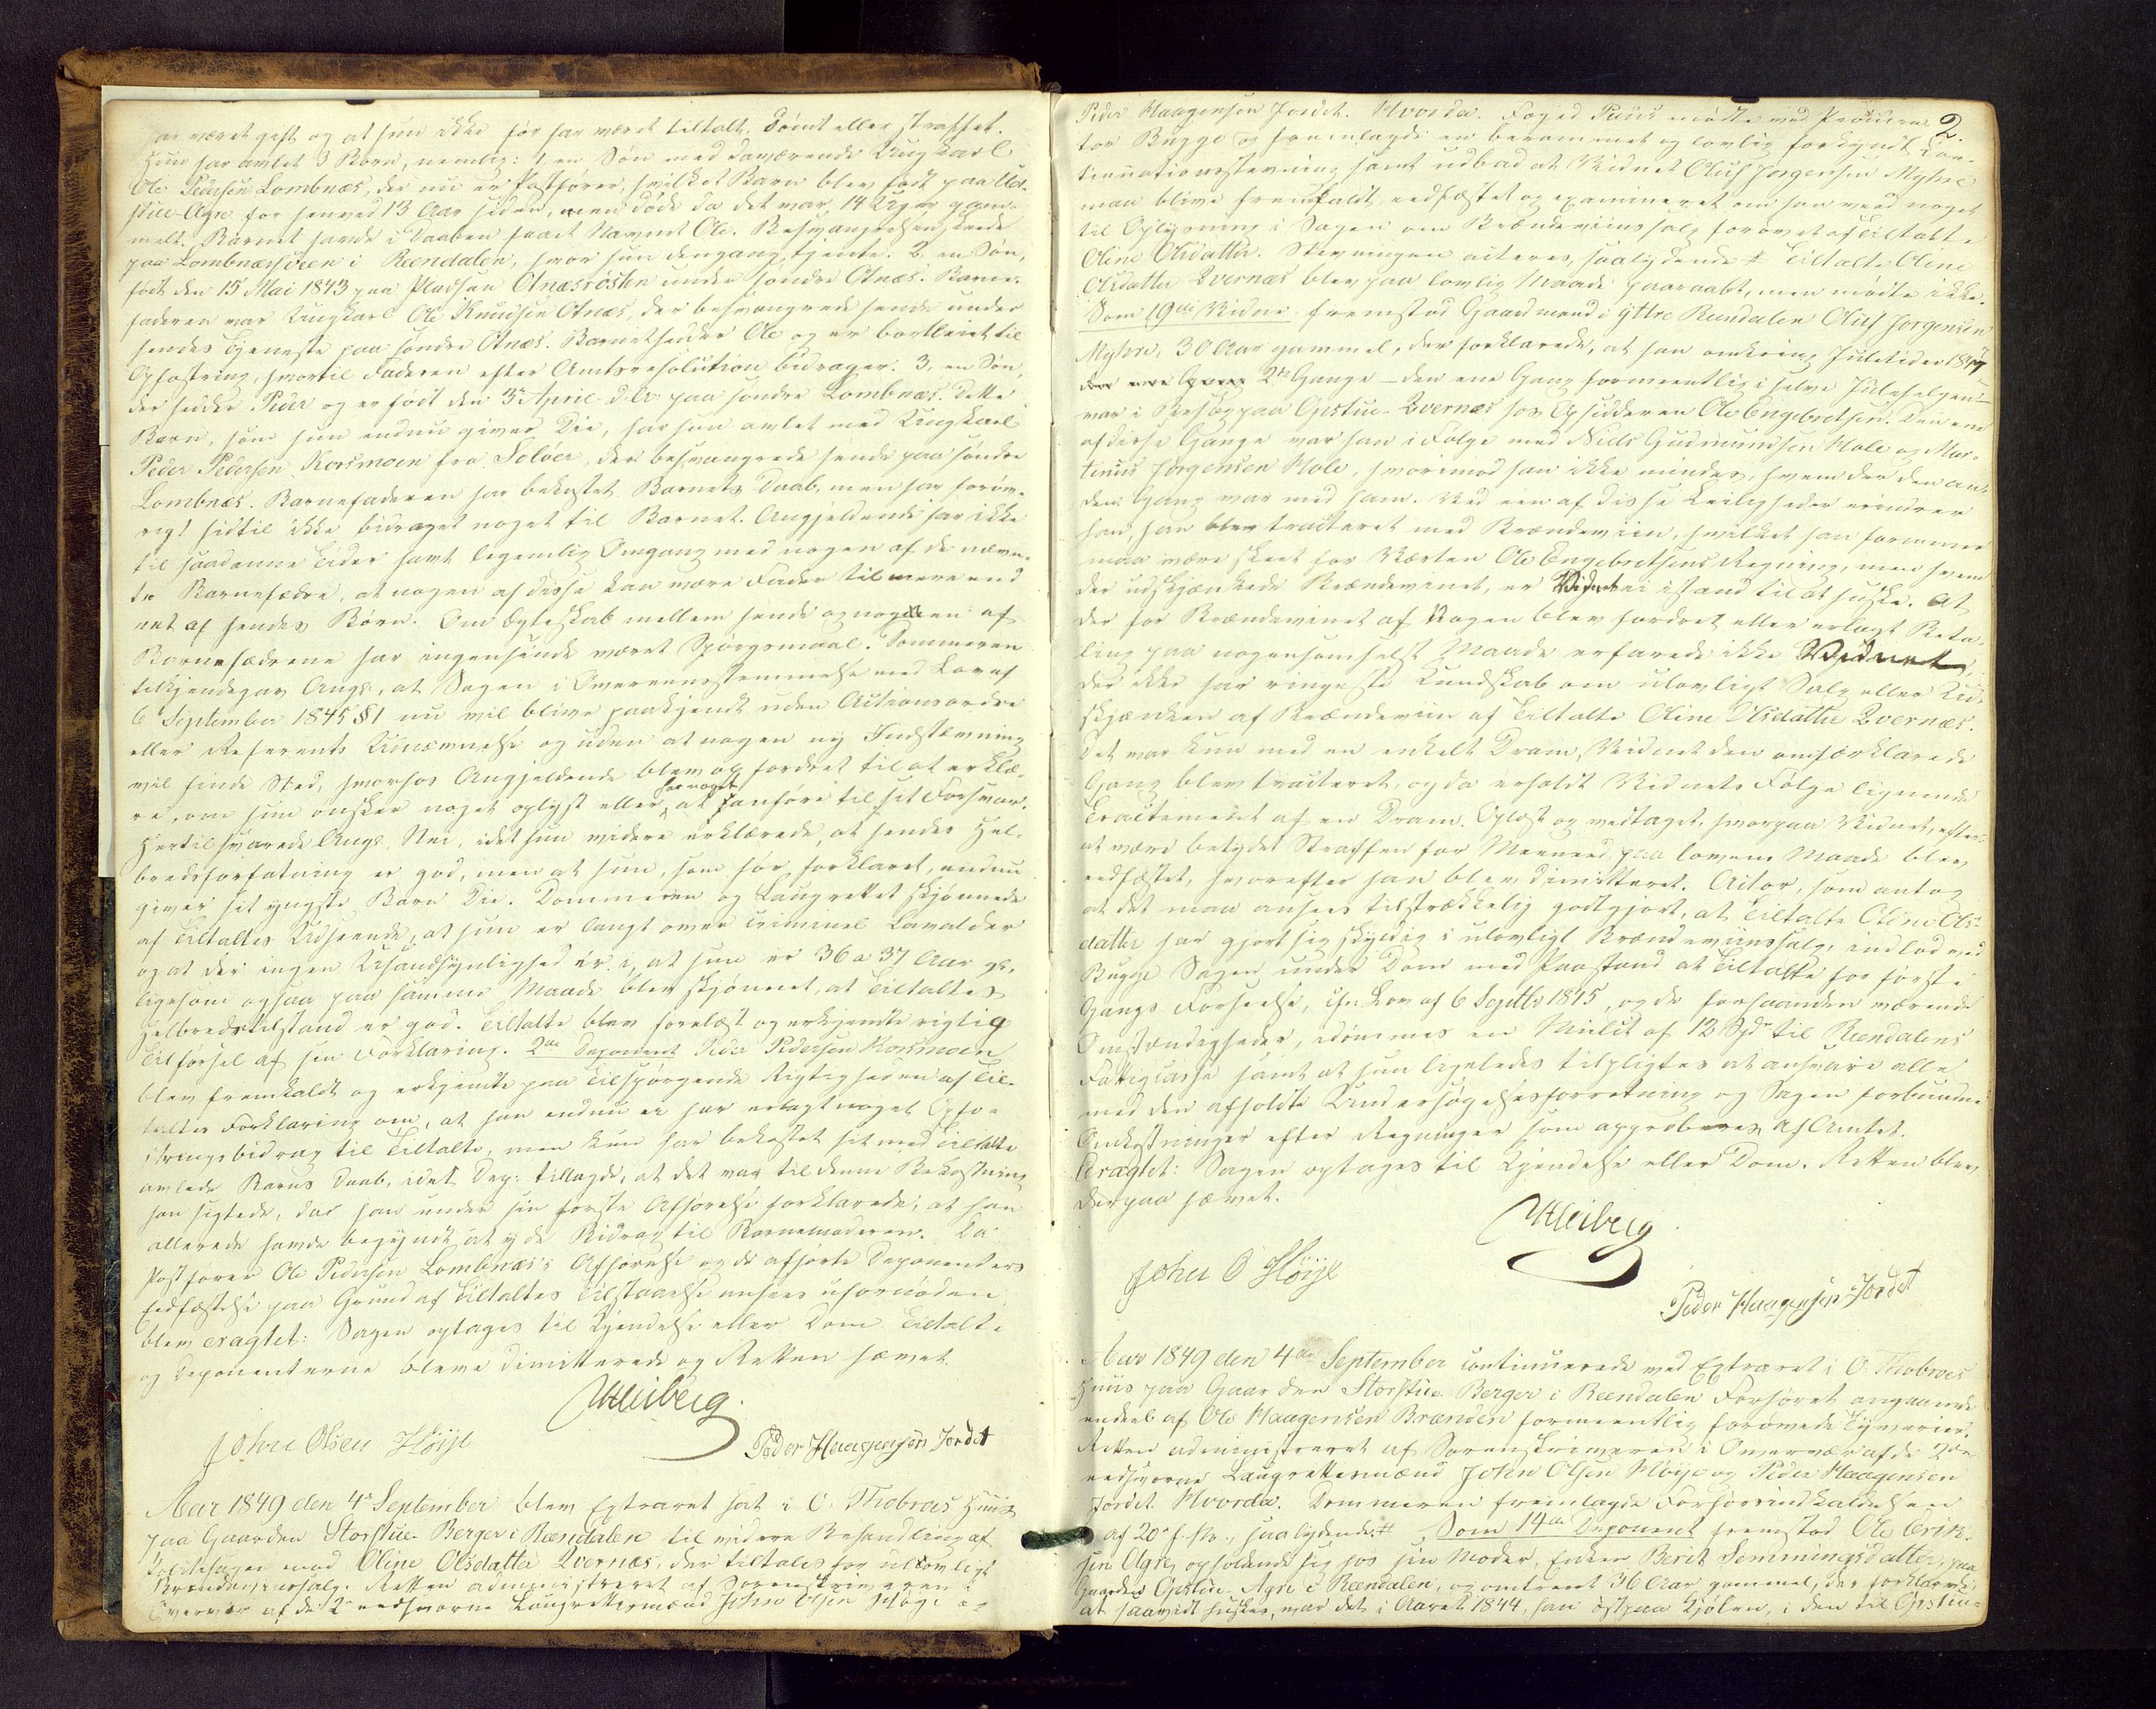 har været gift og at hun ikke før har været tiltalt, dømt eller straffet.
Hun har avlet 3 Børn, nemlig: 1, en Søn med daværende Ungkarl
Ole Pedersen Lombnæs, der nu er Postfører, hvilket Barn blev født paa Ud-
stue-Agre for henved 13 Aar siden, men døde da det var 14 Uger gam-
melt. Barnet havde i Daaben faaet Navnet Ole. Besvangrelsen skede
paa Lombnæshveen i Reendalen, hvor hun dengang tjente. 2, en Søn,
født den 15 Mai 1843 paa Pladsen Otnæsrøsten under søndre Otnæs. Barne-
faderen var Ungkarl Ole Knudsen Otnæs, der besvangrede hende under
hendes Tjeneste paa søndre Otnæs. Barnet hedder Ole og er bortleiet til
Opfostring, hvortil Faderen efter Amtsresolution bidrager. 3, en Søn,
der hedder Peder og er født den 3die April d. Ar. paa søndre Lombnæs. Dette
Barn, som hun endnu giver Die, har hun avlet med Ungkarl
Peder Pedersen Korsmoen fra Soløer, der besvangrede hende paa søndre
Lombnæs. Barnefaderen har bekostet Barnets Daab, men har forøv-
rigt hidtil ikke bidraget noget til Barnet. Angjeldende har ikke
til saadanne Tider havt legemlig Omgang med nogen af de nævn-
te Barnefædre, at nogen af disse kan være Fader til mere end
eet af hendes Børn. Om Egteskab mellem hende og nogen af
Barnefædrene har ingensinde været Spørgsmaal. Dommeren
tilkjendegav Angj., at Sagen i Overeensstemmelse med Lov af
6 September 1845 §1 nu vil blive paakjendt uden Actionsordre
eller Referents Udnævnelse og uden at nogen ny Indstævning
vil finde Sted, hvorhos Angjeldende blev opfordret til at erklæ-
re, om hun ønsker noget oplyst eller har noget at anføre til sit Forsvar.
Hertil svarede Angj. Nei, idet hun videre erklærede, at hendes Hel-
bredsforfatning er god, men at hun, som før forklaret, endnu
giver sit yngste Barn Die. Dommeren og Laugrettet skjønnede
af Tiltaltes Udseende, at hun er langt over criminel Lavalder
og at der ingen Usandsynlighed er i, at hun er 36 a 37 Aar gl.,
ligesom ogsaa paa samme Maade blev skjønnet, at Tiltaltes
Helbredstilstand er god. Tiltalte blev forelæst og erkjendte rigtig
Tilførsel af sin Forklaring. 2den Deponent Peder Pedersen Korsmoen
blev fremkaldt og erkjendte paa Tilspørgende Rigtigheden af Til-
taltes Forklaring om, at han endnu ei har erlagt noget Opfo-
stringsbidrag til Tiltalte, men kun har bekostet sit med Tiltalte
avlede Barns Daab, idet Dep: tillagde, at det var til denne Bekostning
han sigtede, da han under sin første Afhørelse forklarede, at han
allerede havde begyndt at yde Bidrag til Barnemoderen. Da
Postfører Ole Pedersen Lombnæs's Afhørelse og de afhørte Deponenters
Eedfæstelse paa Grund af Tiltaltes Tilstaaelse ansees ufornøden
blev eragtet: Sagen optages til Kjendelse eller Dom. Tiltalte
og Deponenterne bleve dimitterede og Retten hævet.
Meiberg.
John Olsen Høije
Peder Haagensen Jordet
Aar 1849 den 4de September blev Extraret sat i O. Thobroes Huus
paa Gaarden Storstue Berger i Reendalen til videre Behandling af
Politisagen mod Oline Olsdatter Qvernæs, der tiltales for ulovligt
Brændeviinssalg. Retten administreret af Sorenskriveren i
Overvær af de 2 eedsvorne Laugrettesmænd John Olsen Høije og
2.
Peder Haagensen Jordet. Hvorda. Foged Preus mødte ved Procura-
tor Bugge og fremlagde en berammet og lovlig forkyndt Con-
tinuationsstevning samt udbad at Vidnet Oluf Jørgensen Myhre
maa blive fremkaldt, eedfæstet og examineret om han veed noget
til Oplysning i Sagen om Brændeviinssalg forøvet af Tiltalte
Oline Olsdatter. Stevningen acteres, saalydende # Tiltalte Oline
Olsdatter Qvernæs blev paa lovlig Maade paaraabt, men mødte ikke.
Som 19de Vidne fremstod Gaardmand i ÿttre Reendalen Oluf Jørgensen
Myhre, 30 Aar gammel, der forklarede, at han omkring Juletider 1847
2de Gange – den ene Gang formeentlig i selve Julehelgen –
var i Besøg paa Opstue-Qvernæs hos Opsidderen Ole Engebretsen. Den ene
af disse Gange var han i Følge med Niels Gudmundsen Hole og Mar-
tinus Jørgensen Hole, hvorimod han ikke mindes, hvem der den an-
den Gang var med ham. Ved een af disse Leiligheder erindrer
han, han blev tracteret med Brændeviin, hvilket han formener
maa være skeet for Værten Ole Engebretsens Regning, men hvem
der udskjænkede Brændevinet, er Vidnet ei istand til at huske. At
der for Brændevinet af Nogen blev fordret eller erlagt Beta-
ling paa nogensomhelst Maade erfarede ikke Vidnet,
der ikke har ringeste Kundskab om ulovligt Salg eller Ud-
skjænken af Brændeviin af Tiltalte Oline Olsdatter Qvernæs.
Det var kun med en enkelt Dram, Vidnet den omforklarede
Gang blev tracteret, og da erholdt Vidnets Følge lignende
Tractement af en Dram. Oplæst og vedtaget, hvorpaa Vidnet, efter
at være betydet Straffen for Meeneed paa lovem. Maade blev
eedfæstet, hvorefter han blev dimitteret. Actor, som antog
at det maa ansees tilstrækkelig godtgjort, at Tiltalte Oline Ols-
datter har gjort sig skyldig i ulovligt Brændeviinssalg, indlod ved
Bugge Sagen under Dom med Paastand at Tiltalte for første
Gangs Forseelse, cfr. Lov af 6 Septbr 1845, og de forhaanden værende
Omstændigheder, idømmes en Mulct af 12 Spdr til Reendalens
Fattigcasse samt at hun ligeledes tilpligtes at ansvare alle
med den afholdte Undersøgelsesforretning og Sagen forbundne
Omkostninger efter Regninger som approberes af Amtet.
Eragtet: Sagen optages til Kjendelse eller Dom. Retten blev
derpaa hævet.
Meiberg
John O Høije
Peder Haagensen Jordet
Aar 1849 den 4de September continuerede ved Extraret i O. Thobroes
Huus paa Gaarden Storstue Berger i Reendalen Forhøret angaaende
endeel af Ole Haagensen Brænden formeentlig forøvede Tyverier.
Retten administreret af Sorenskriveren i Overvær af de 2de
eedsvorne Laugrettesmænd John Olsen Høije og Peder Haagensen
Jordet. Hvorda. Dommeren fremlagde Forhørsindkaldelsen
af 20de f. M., saalydende: # Som 14de Deponent fremstod Ole Erik-
sen Agre, opholdende sig hos sin Moder, Enken Berit Semmingsdatter, paa
Gaarden Opstue Agre i Reendalen, og omtrent 36 Aar gammel, der forklarede
at saavidt huskes, var det i Aaret 1844, han østpaa Kjølen, i den til Opstue-